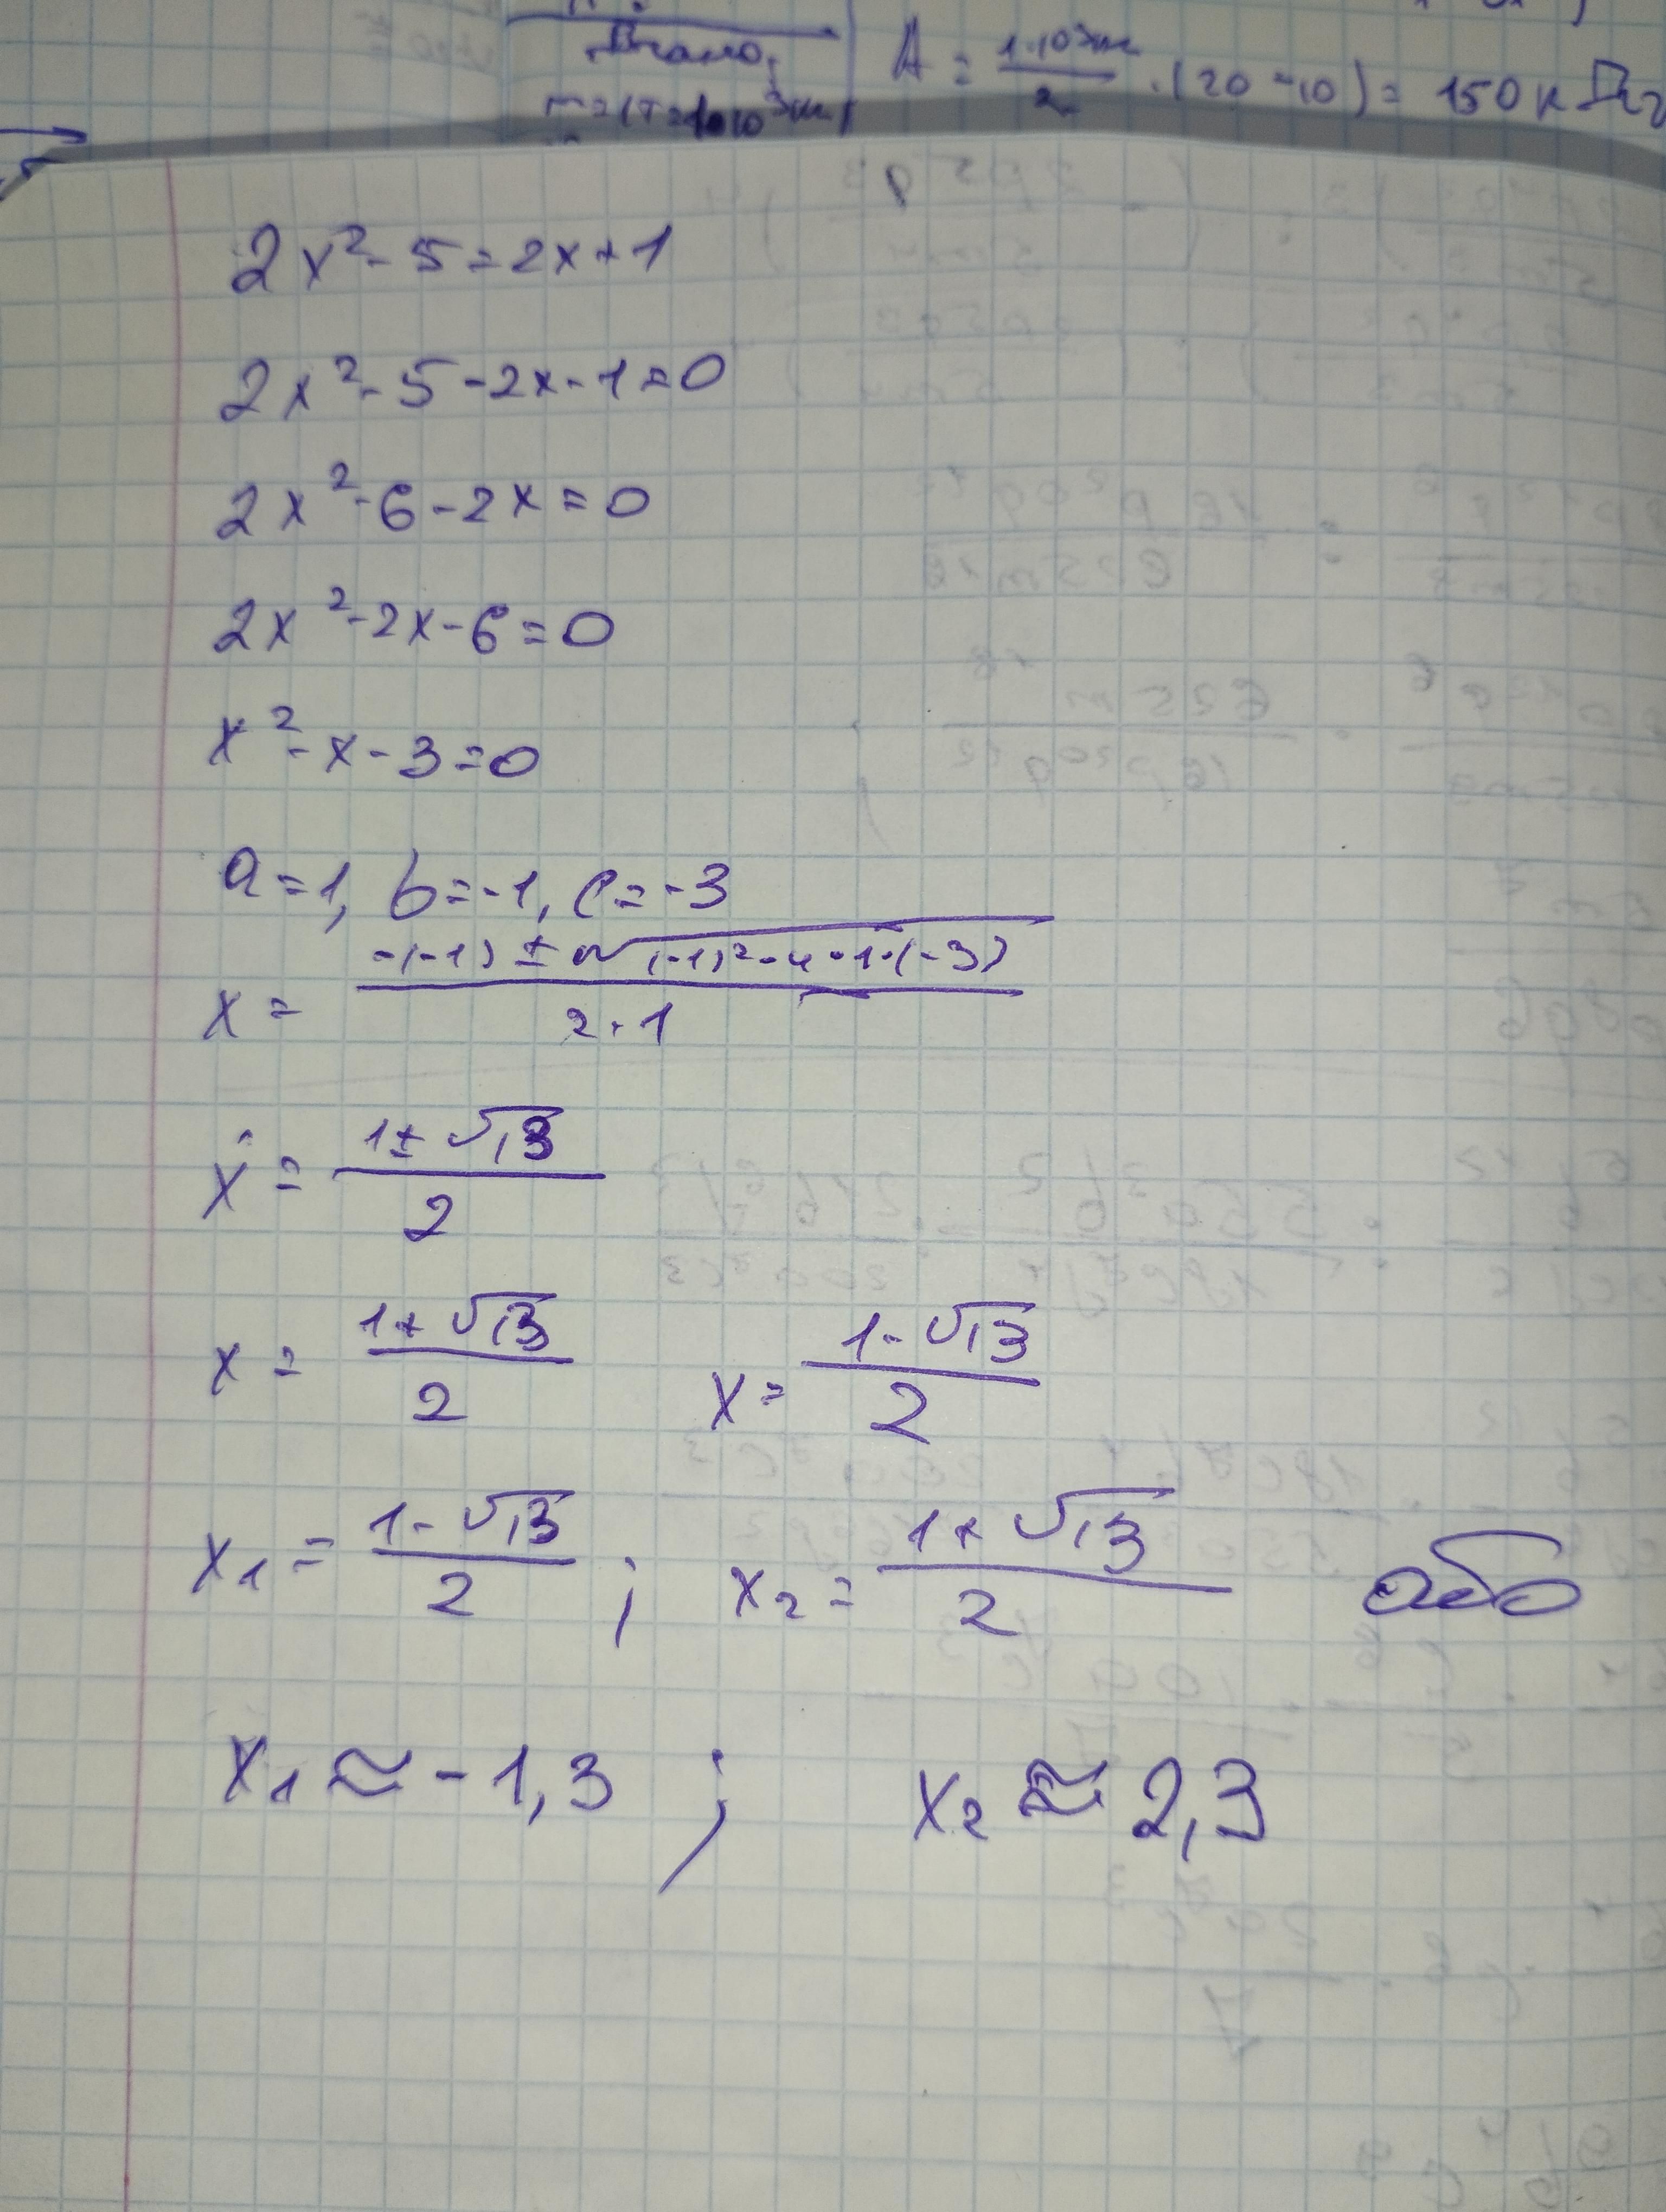 A = 1·10³кг/2 · (20 - 10) = 150 к
2x² - 5 = 2x + 1
2x² - 5 - 2x - 1 = 0
2x² - 6 - 2x = 0
2x² - 2x - 6 = 0
x² - x - 3 = 0
a = 1, b = -1, c = -3
x = (-(-1) ± √((-1)² - 4·1·(-3)))/(2·1)
x = (1 ± √13)/2
x = (1 + √13)/2 x = (1 - √13)/2
x₁ = (1 - √13)/2 ; x₂ = (1 + √13)/2 або
x₁ ≈ -1,3 ; x₂ ≈ 2,3